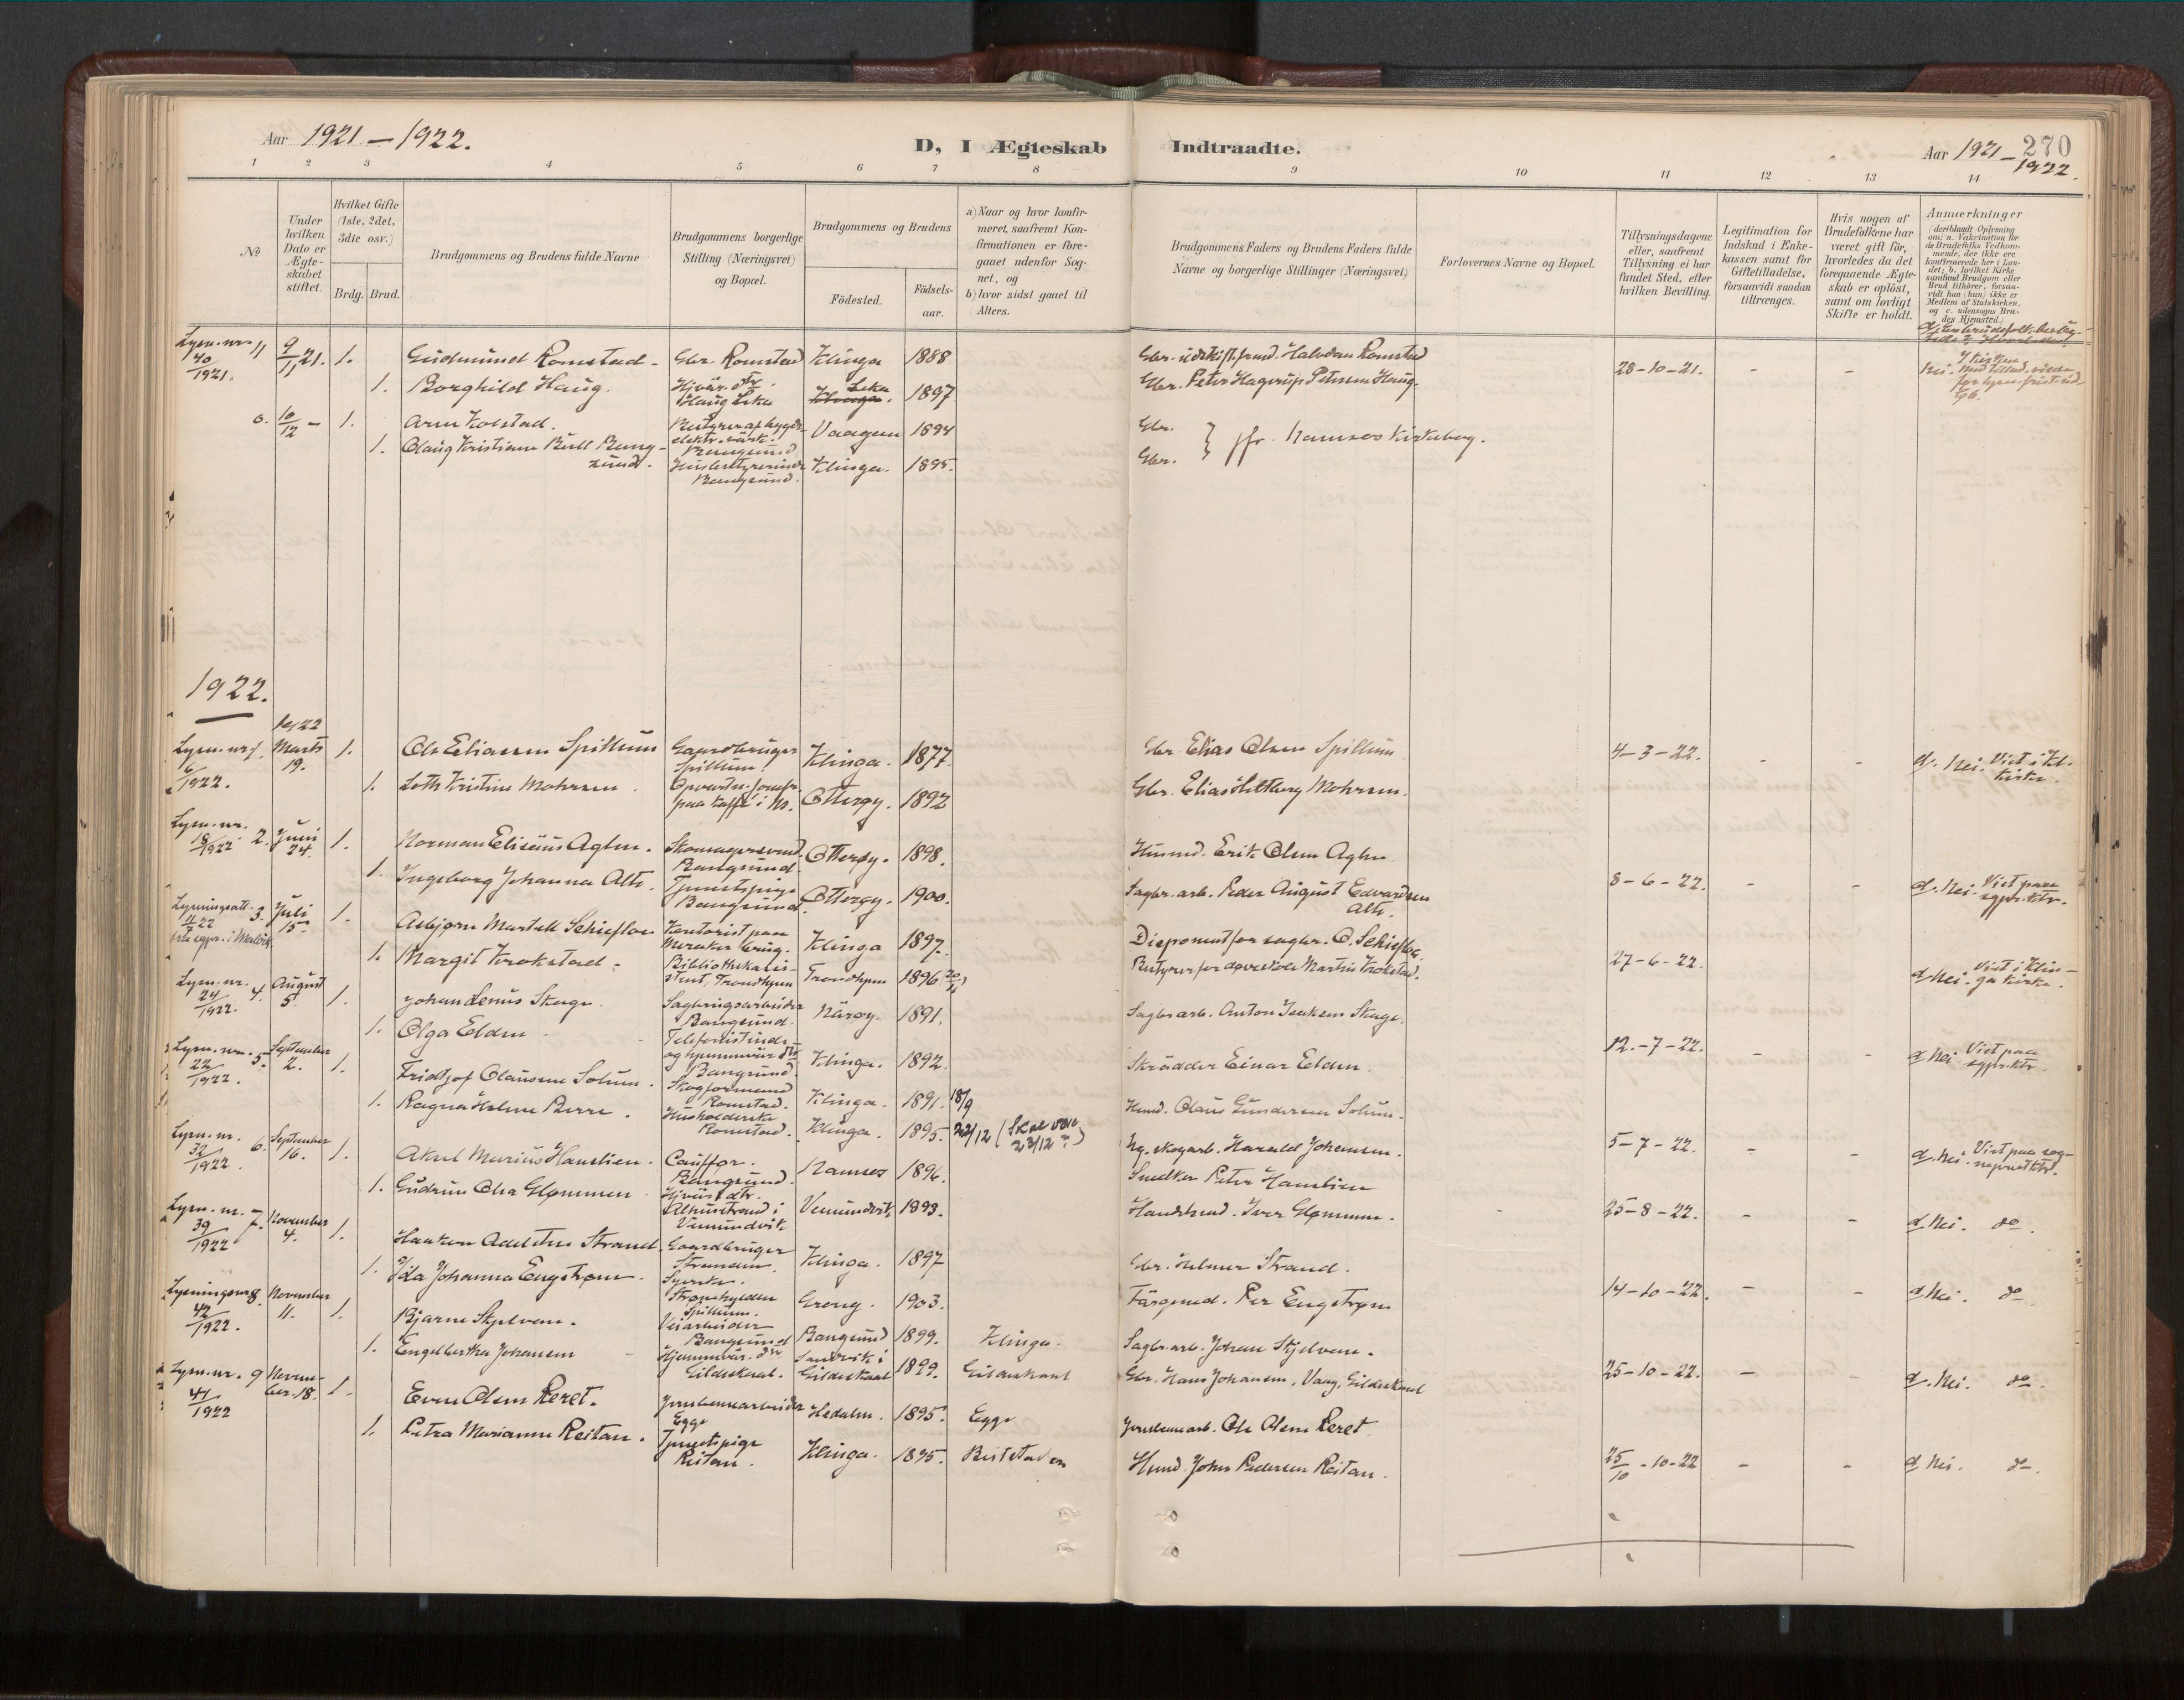 Aar 1921 – 1922.
D, I Ægteskab Indtraadte.
Aar 1921 – 1922.
270
1 2 3 4 5 6 7 8 9 10 11 12 13 14
№
Under hvilken Dato er Ægte-skabet stiftet.
Hvilket Gifte (1ste, 2det, 3die osv.)
Brdg. Brud.
Brudgommens og Brudens fulde Navne
Brudgommens borgerlige Stilling (Næringsvei) og Bopæl.
Brudgommens og Brudens
Födested.
Födsels-aar.
a) Naar og hvor konfir-meret, saafremt Kon-firmationen er fore-gaaet udenfor Sog-net, og
b) hvor sidst gaaet til Alters.
Brudgommens Faders og Brudens Faders fulde Navne og borgerlige Stillinger (Næringsvei)
Forlovernes Navne og Bopæl.
Tillysningsdagene eller, saafremt Tillysning ei har fundet Sted, efter hvilken Bevilling.
Legitimation for Indskud i Enke-kassen samt for Giftetilladelse, forsaavidt saadan tiltrænges.
Hvis nogen af Brudefolkene har været gift för, hvorledes da det foregaaende Ægte-skab er oplöst, samt om lovligt Skifte er holdt.
Anmærkninger (deriblandt Oplysning om: a. Vakcination for de Brudefolks Vedkom-mende, der ikke ere konfirmerede her i Lan-det; b. hvilket Kirke-samfund Brudgom eller Brud tilhörer, forsaa-vidt han (hun) ikke er Medlem af Statskirken, og c. udensogns Bru-des Hjemsted.)
Lysn. nr. 40/1921. 11 9/11 21. 1. Gudmund Romstad. Gbr. Romstad Klinga 1888 Halvdan Romstad 28-10-21. - -
1. Borghild Haug. Hjvær. dtr. Haug Leka Leka Klinga. 1897 Gbr. Peter Hagerup Petersen Haug.
o. 10/12 – 1. Arne Kolstad. Bestyrer af bygde-elektr. værk. Bangsund Vaagen 1894 Gbr.
1. Olaug Kristiane Bull Bang-sund. Husbestyrerinde Bangsund. Klinga. 1895. Gbr. } jfr. Namsos kirkebog.
1922.
Lysn. nr. 6/1922. 1. 1922 Marts 19. 1. Ole Eliassen Spillum Gaardbruger Spillum. Klinga. 1877. Gbr. Elias Olsen Spillum 4-3-22. - - d. Nei. Viet i Kl. kirke.
1. Loth Kristine Mohrsen. paa kaffe i Ns. Otterøy. 1892 Gbr. Elias Mohrsen.
Lysn. nr. 18/1922 2. Juni 24. 1. Norman Eliseius Aglen. Skomagersvend. Bangsund. Otterøy. 1898. Husmd. Erik Olsen Aglen 8-6-22. - - d. Nei. Viet paa sgpr. ktr.
1. Ingeborg Johanna Alte. Tjenestepige Bangsund. Otterøy. 1900. Sagbr. arb. Peder August Edvardsen Alte.
Lysningsatt. 11/7 22 fra sgpr. i Malvik. 3. Juli 15. 1. Asbjørn Martell Schiefloe Kontorist paa Meraker brug. Klinga 1897. Disponent for sagbr. O. Schiefloe. 27-6-22. d. Nei. Viet i Klin-ga kirke.
1. Margit Krokstad. Bibliothekassi-stent, Trondhjem Trondhjem 1896 Bestyrer for døveskole Martin Krokstad.
Lysn. nr. 24/1922. 4. August 5. 1. Johan Lenus Skage. Sagbrugsarbeider Bangsund. Närøy. 1891. Sagbr. arb. Anton Isaksen Skage. 12.-7-22. - - d. Nei. Viet paa sgpr. ktr.
1. Olga Elden. Telefonistinde og hjemmevær. dtr. Bangsund. Klinga. 1892. Skrädder Einar Elden.
Lysn. nr. 22/1922. 5. September 2. 1. Fridtjof Olausen Solum. Skogformand Romstad. Klinga. 1891. 18/9 Husmd. Olaus Gundersen Solum. 5-7-22. - - d. Nei. Viet paa sog-neprestktr.
1. Ragna Helene Berre. Husholderske Romstad. Klinga. 1895. 22/12 (Skal være 23/12?) Ng. skogarb. Harald Johansen.
Lysn. nr. 32/1922. 6. September 16. 1. Aksel Marius Hanslien. Bangsund. Namsos 1896. Snedker Peter Hanslien 25-8-22. - - d. Nei. do.
1. Gudrun Olea Glømmen Hjvær. dtr. Alhusstrand i Vemundvik Vemundvik 1893. Iver Glømmen.
Lysn. nr. 39/1922 7. November 4. 1. Haakon Adelsten Strand. Gaardbruger Stranden. Klinga. 1897 Gbr. Helmer Strand. 14-10-22. - - d. Nei. do
1. Ida Johanna Engstrøm. Syerske. Spillum. Grong. 1903. Färgemd. Per Engstrøm
Lysningsnr. 42/1922. 8. November 11. 1. Bjarne Skjelven. Veiarbeider Bangsund Bangsund 1899. Klinga. Sagbr. arb. Johan Skjelven. 25-10-22. - - d. Nei. do.
1. Engelbertha Johansen Hjemmevær. dtr Gildeskaal. Sandvik i Gildeskaal 1899. Gildeskaal Gbr. Hans Johansen, Vaag, Gildeskaal
Lysn. nr. 41/1922 9 Novem-ber. 18. 1. Even Olsen Leret. Jernbanearbeider Egge Hedalen. 1895. Egge Jernbanearb. Ole Olsen Leret 25/10-10-22 - - d. Nei. do.
1. Petra Marianne Reitan. Tjenestepige Reitan. Klinga. 1895. Beitstaden Husmd. Johan Pedersen Reitan.